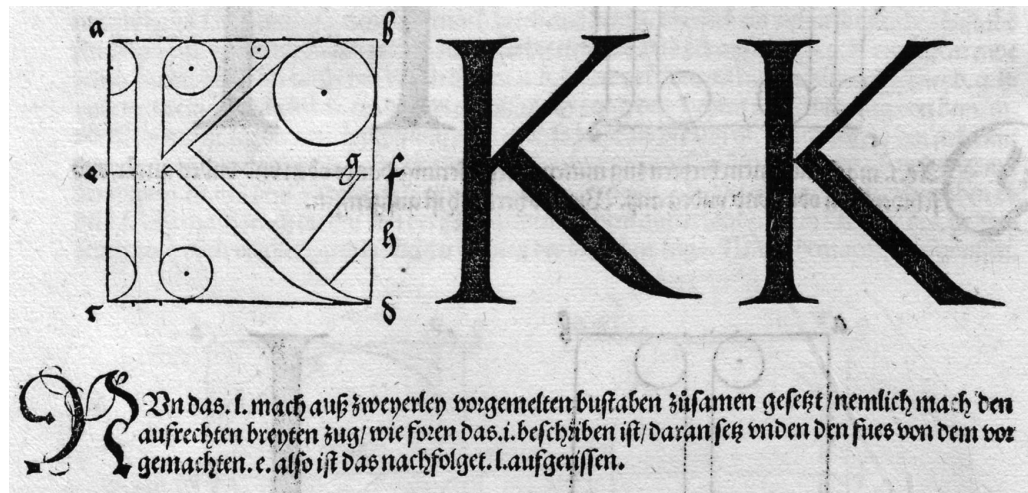 a b
K K
e g f
h
c d
NUn das. l. mach auß zweyerley vorgemelten bustaben zůsamen gesetzt / nemlich mach den
aufrechten breyten zug / wie foren das. i. beschriben ist / daran setz vnden den fues von dem vor
gemachten. e. also ist das nachfolget. l. aufgerissen.